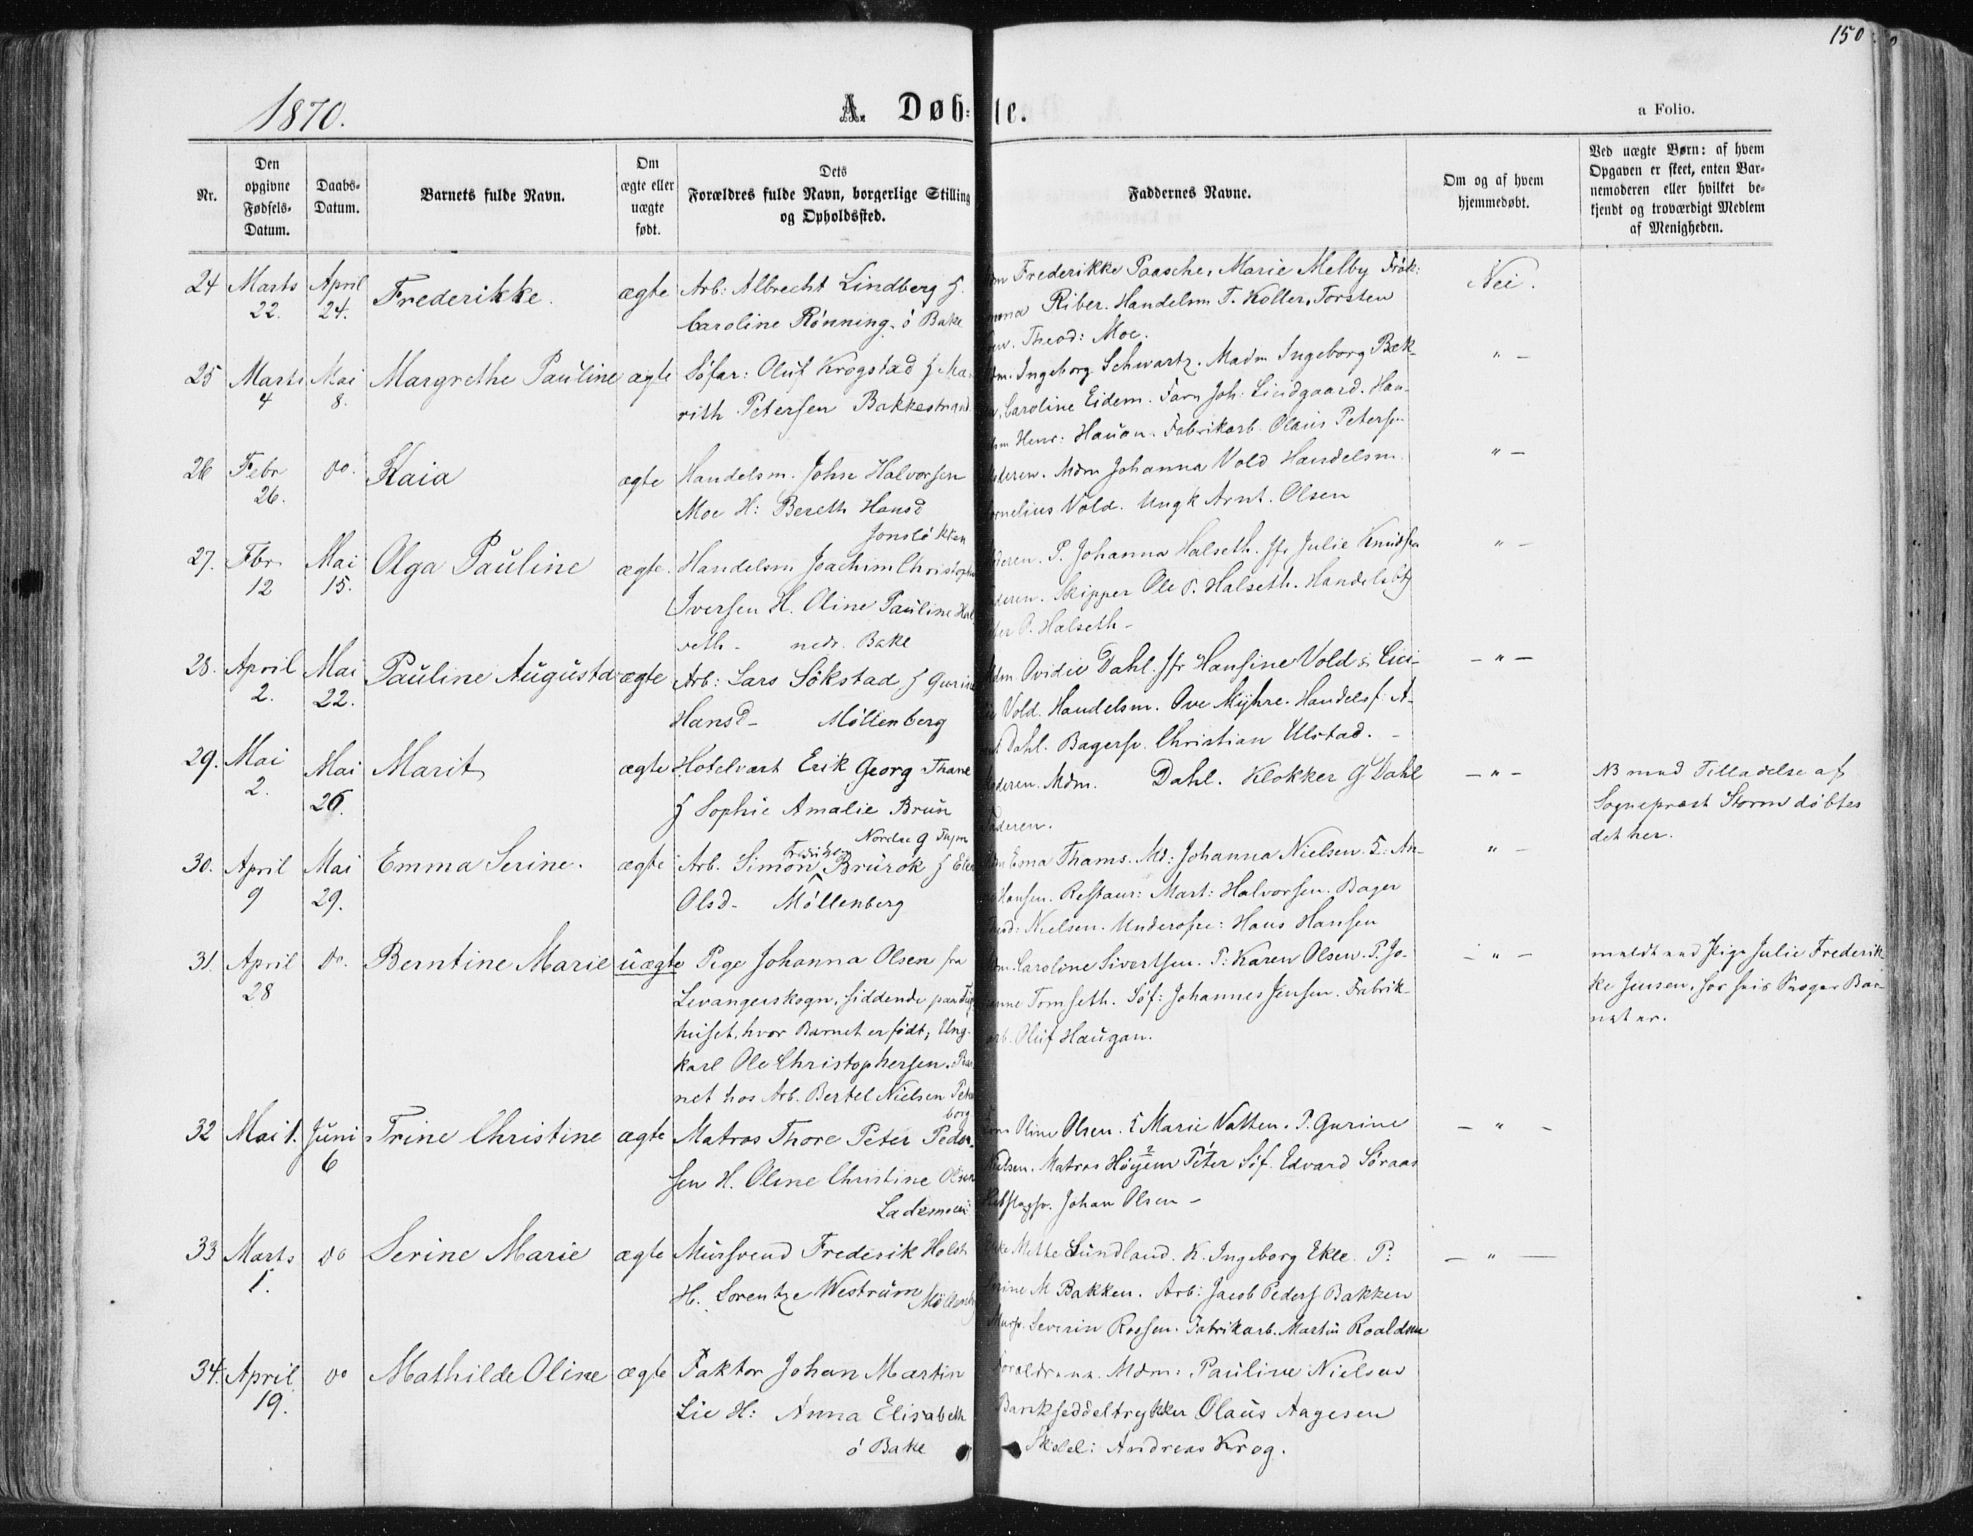 150
1870.
A. Døb-
te.
a Folio.
Nr.
Den opgivne Fødsels-Datum.
Daabs-Datum.
Barnets fulde Navn.
Om ægte eller uægte født.
Dets Forældres fulde Navn, borgerlige Stilling og Opholdssted.
Faddernes Navne.
Om og af hvem hjemmedøbt.
Ved uægte Børn: af hvem Opgaven er skeet, enten Barnemoderen eller hvilket bekjendt og troværdigt Medlem af Menigheden.
24 Marts 22. April 24. Frederikke. ægte Arb: Albrecht Lindberg &
Caroline Rönning. ö Bake
Frederikke Paasche, Marie Melby Frök:
Riber. Handelsm T. Koller, Torsten
Theod: Moe.
Nei.
25 Marts 4 Mai 8. Margrethe Pauline ægte Söfar: Oluf Krogstad & Ma-
rith Petersen Bakkestrand
Ingeborg Schwartz. Madm Ingeborg Bek-
Caroline Eidem. Farv Joh. Lieidgaard. Han-
Henr: Hauan. Fabrikarb. Olaus Petersen
" —
26 Febr 26. do. Kaia ægte Handelsm. John Halvorsen
Moe H: Bereth Hansd
Jonslökken
Mdm Johanna Vold Handelsm.
Cornelius Vold. Ungk Arnt. Olsen
" —
27. Fbr. 12 Mai 15. Olga Pauline ægte. Handelsm Joachim Christopher
Iversen H. Oline Pauline Hal-
seth - nedr. Bake
P. Johanna Halseth. Jfr Julie Knudsen
Skipper Ole P. Halseth. Handelsbtj
P. Halseth -
" —
28. April 2. Mai 22. Pauline Augusta ægte Arb: Lars Sökstad & Gurine
Hansd - Möllenberg
Mdm Ovidie Dahl. Jfr Hansine Vold & Cici-
Vold. Handelsm. Ove Myhre. Handelsf: A-
Dahl. Bagersv. Christian Ulstad. -
— " —
29. Mai 2. Mai 26. Marit ægte Hotelvært Erik Georg Thane
& Sophie Amalie Brun
Nordre G
Mdm. Dahl. Klokker G Dahl
Faderen.
— " —
NB med Tilladelse af
Sogneprest Storm döbtes
det her.
30. April 9 Mai 29. Emma Serine. ægte Arb. Simon Brurok &
Olsd - Möllenberg
Thams. Md: Johanna Nielsen. An-
Hansen. Restaur: Mart: Halvorsen. Bager
Nielsen. Underofic: Hans Hansen
" —
31. April 28 do. Berntine Marie uægte Pige Johanna Olsen fra
Levangerskogn, siddende paa
huset, hvor Barnet er født, Ung-
karl Ole Christophersen. Bar-
net hos Arb. Bertel Nielsen Peters-
borg
Caroline Sivertsen. P: Karen Olsen. P. Jo-
Tomseth. Söf: Johannes Jensen. Fabrik-
arb. Oluf Haugan.
— " —
meldt ved Pige Julie Frederik-
ke Jensen, for hvis Barnet er.
32 Mai 1. Juni 6 Trine Christine ægte Matros Thore Peter Peder-
sen H. Oline Christine Olsen
Lademoen
Oline Olsen. Marie Vatten. P. Gurine
Nielsen. Matros Höyem Peter Söf. Edvard Söraas
Johan Olsen -
— " —
33 Marts 1. do Serine Marie ægte Mursvend Frederik Holst
H. Lorentze Westrum Möllenb
Mette Sundland. K. Ingeborg Ekle. P:
Serine M Bakken. Arb: Jacob Peders Bakken
Mursv. Severin Rossen. Fabrikarb. Martin Roaldsen
— " —
34. April 19. do Mathilde Oline ægte Faktor Johan Martin
Lie H: Anna Elisabeth
ö Bake
Forældrene. Mdm: Pauline Nielsen
Bankseddeltrykker Olaus Aagesen
Andreas Krog.